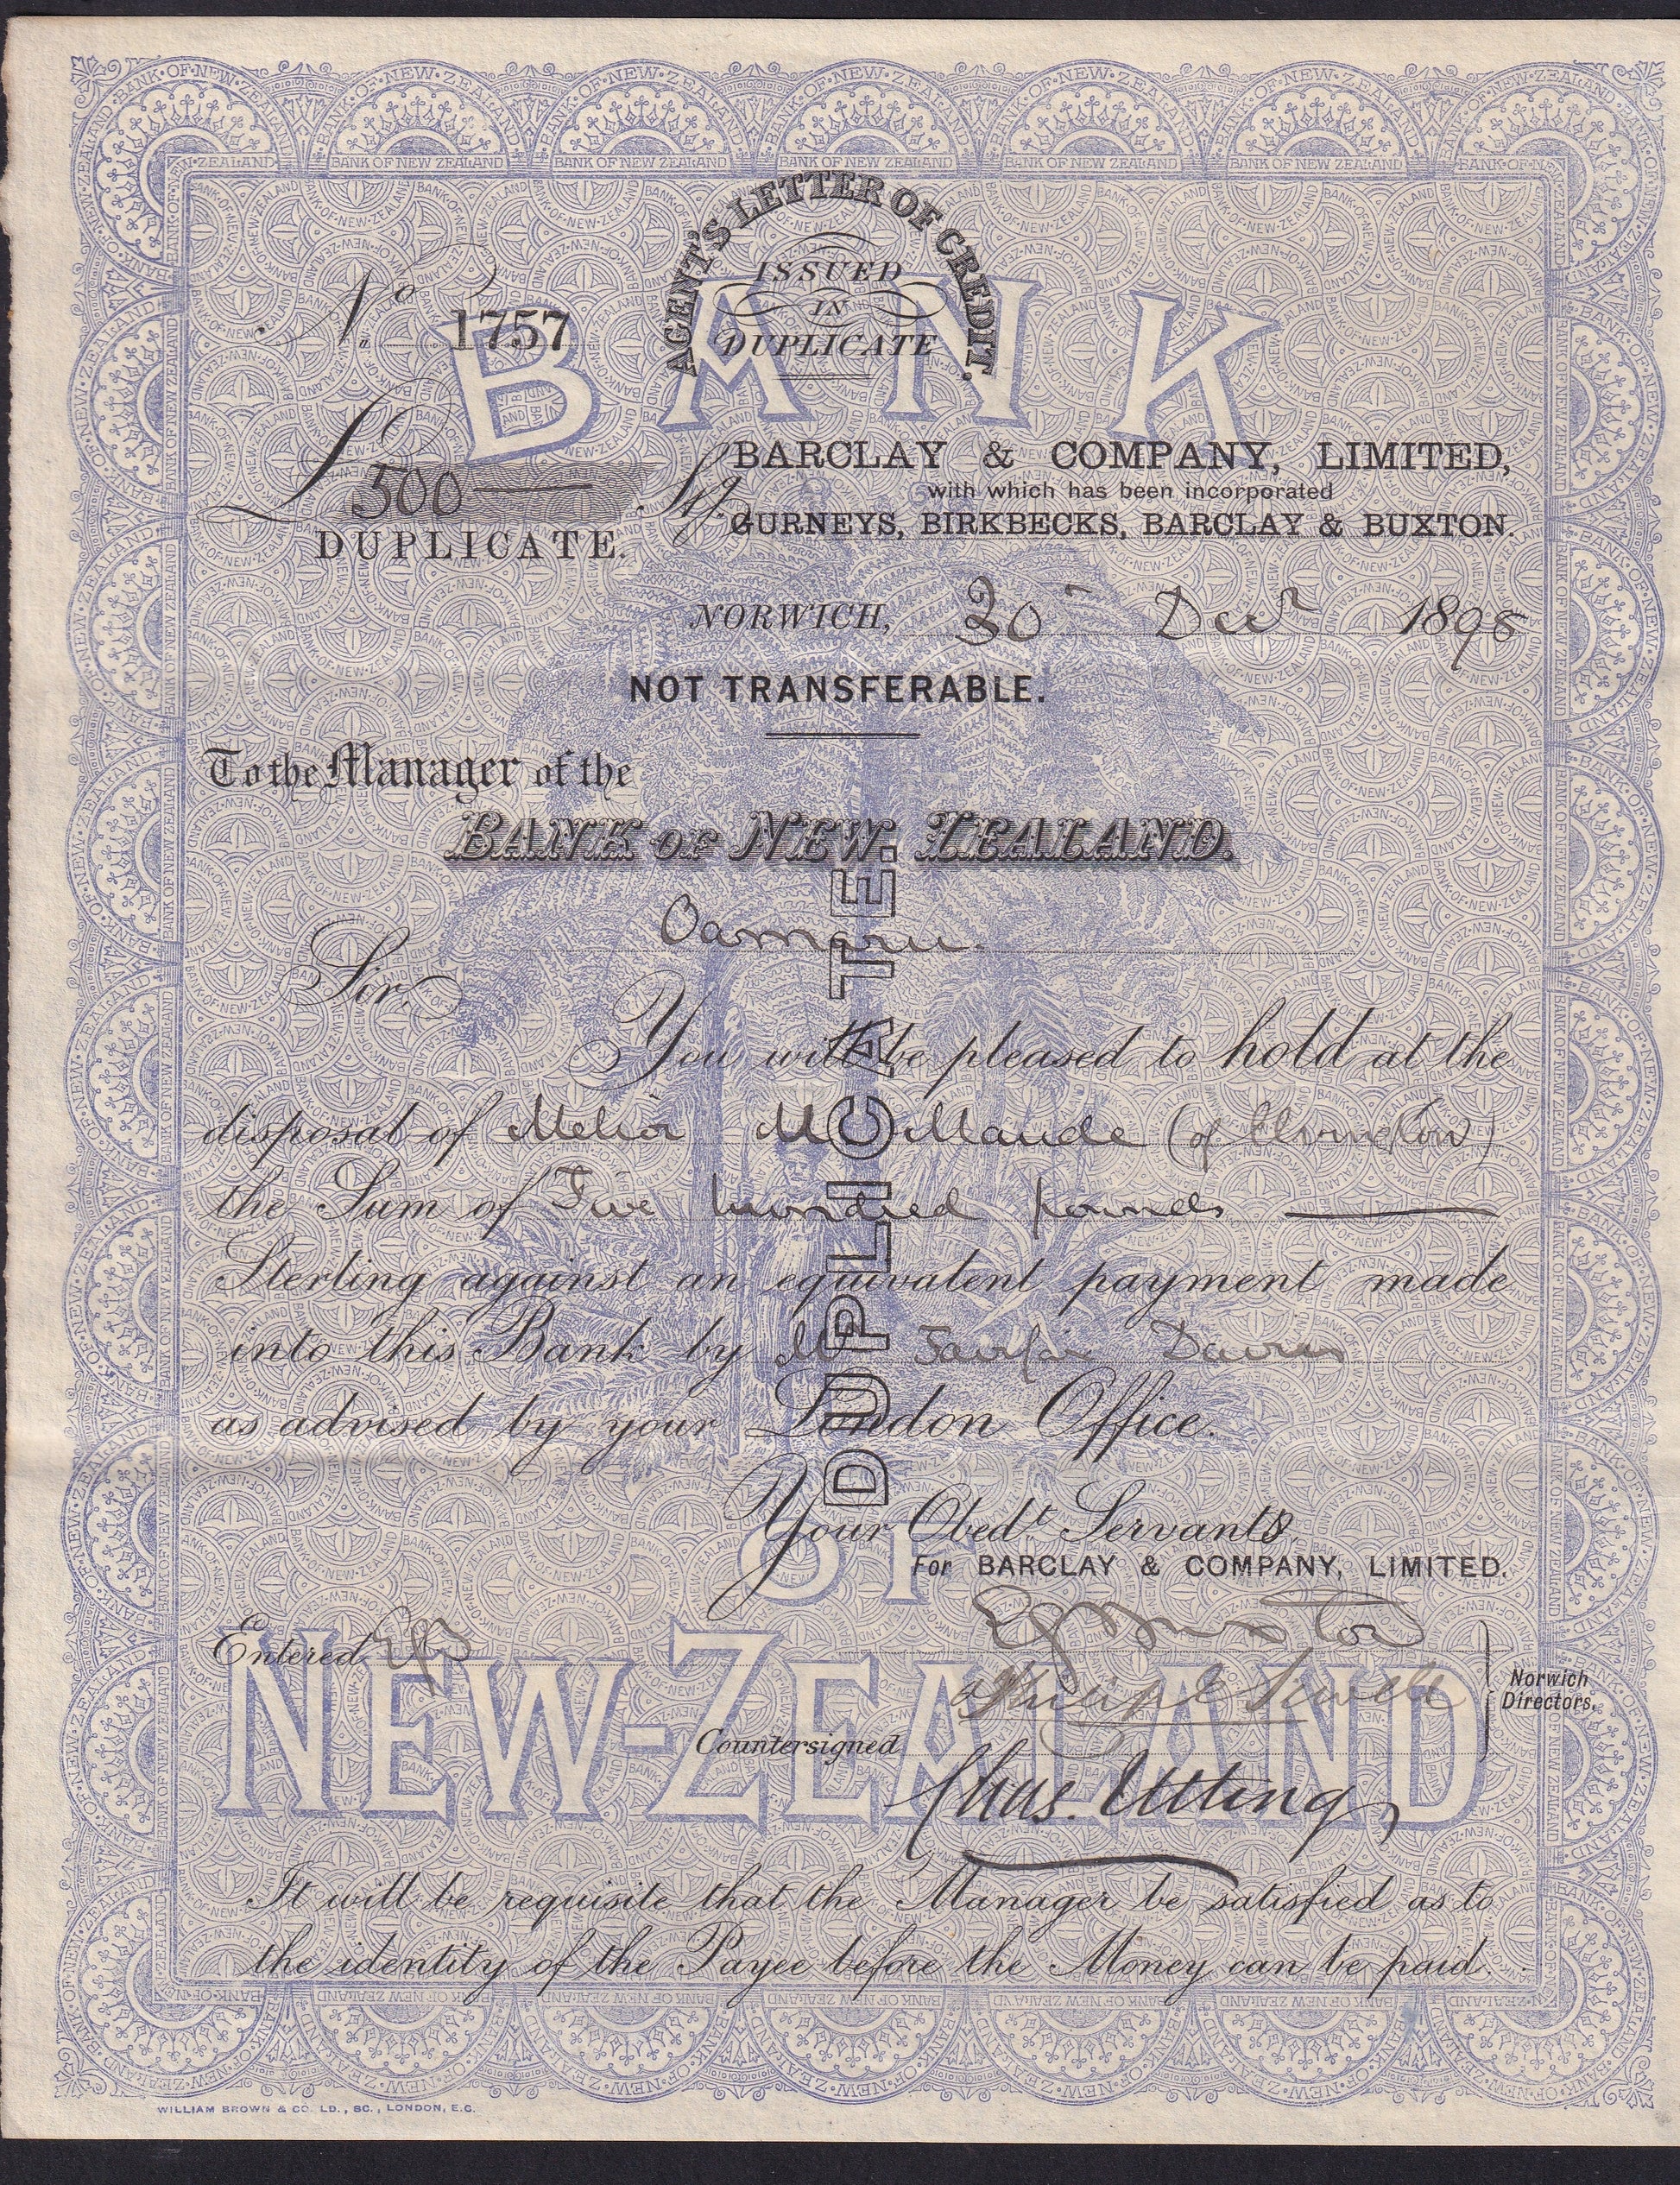 AGENT'S LETTER OF CREDIT.
ISSUED
IN
DUPLICATE
BANK
No 1757
£ 500 — Stg.
DUPLICATE.
BARCLAY & COMPANY, LIMITED,
with which has been incorporated
GURNEYS, BIRKBECKS, BARCLAY & BUXTON.
NORWICH, 30 Decr 1898
NOT TRANSFERABLE.
To the Manager of the
BANK OF NEW ZEALAND.
Oamaru.
Sir
You will be pleased to hold at the
disposal of Maude (of
the Sum of Five hundred pounds
Sterling against an equivalent payment made
into this Bank by Mr Fairfax Davies
as advised by your London Office.
DUPLICATE.
Your Obedt Servants
For BARCLAY & COMPANY, LIMITED.
OF
Entered
Buxton
Sewell
Norwich
Directors.
NEW-ZEALAND
Countersigned
Chas. Utting
It will be requisite that the Manager be satisfied as to
the identity of the Payee before the Money can be paid.
WILLIAM BROWN & CO. LD., SC., LONDON, E.C.